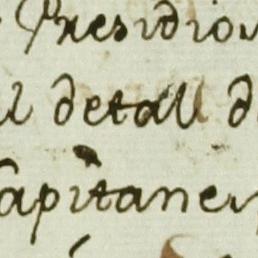 Presidio
el detall d
Capitane